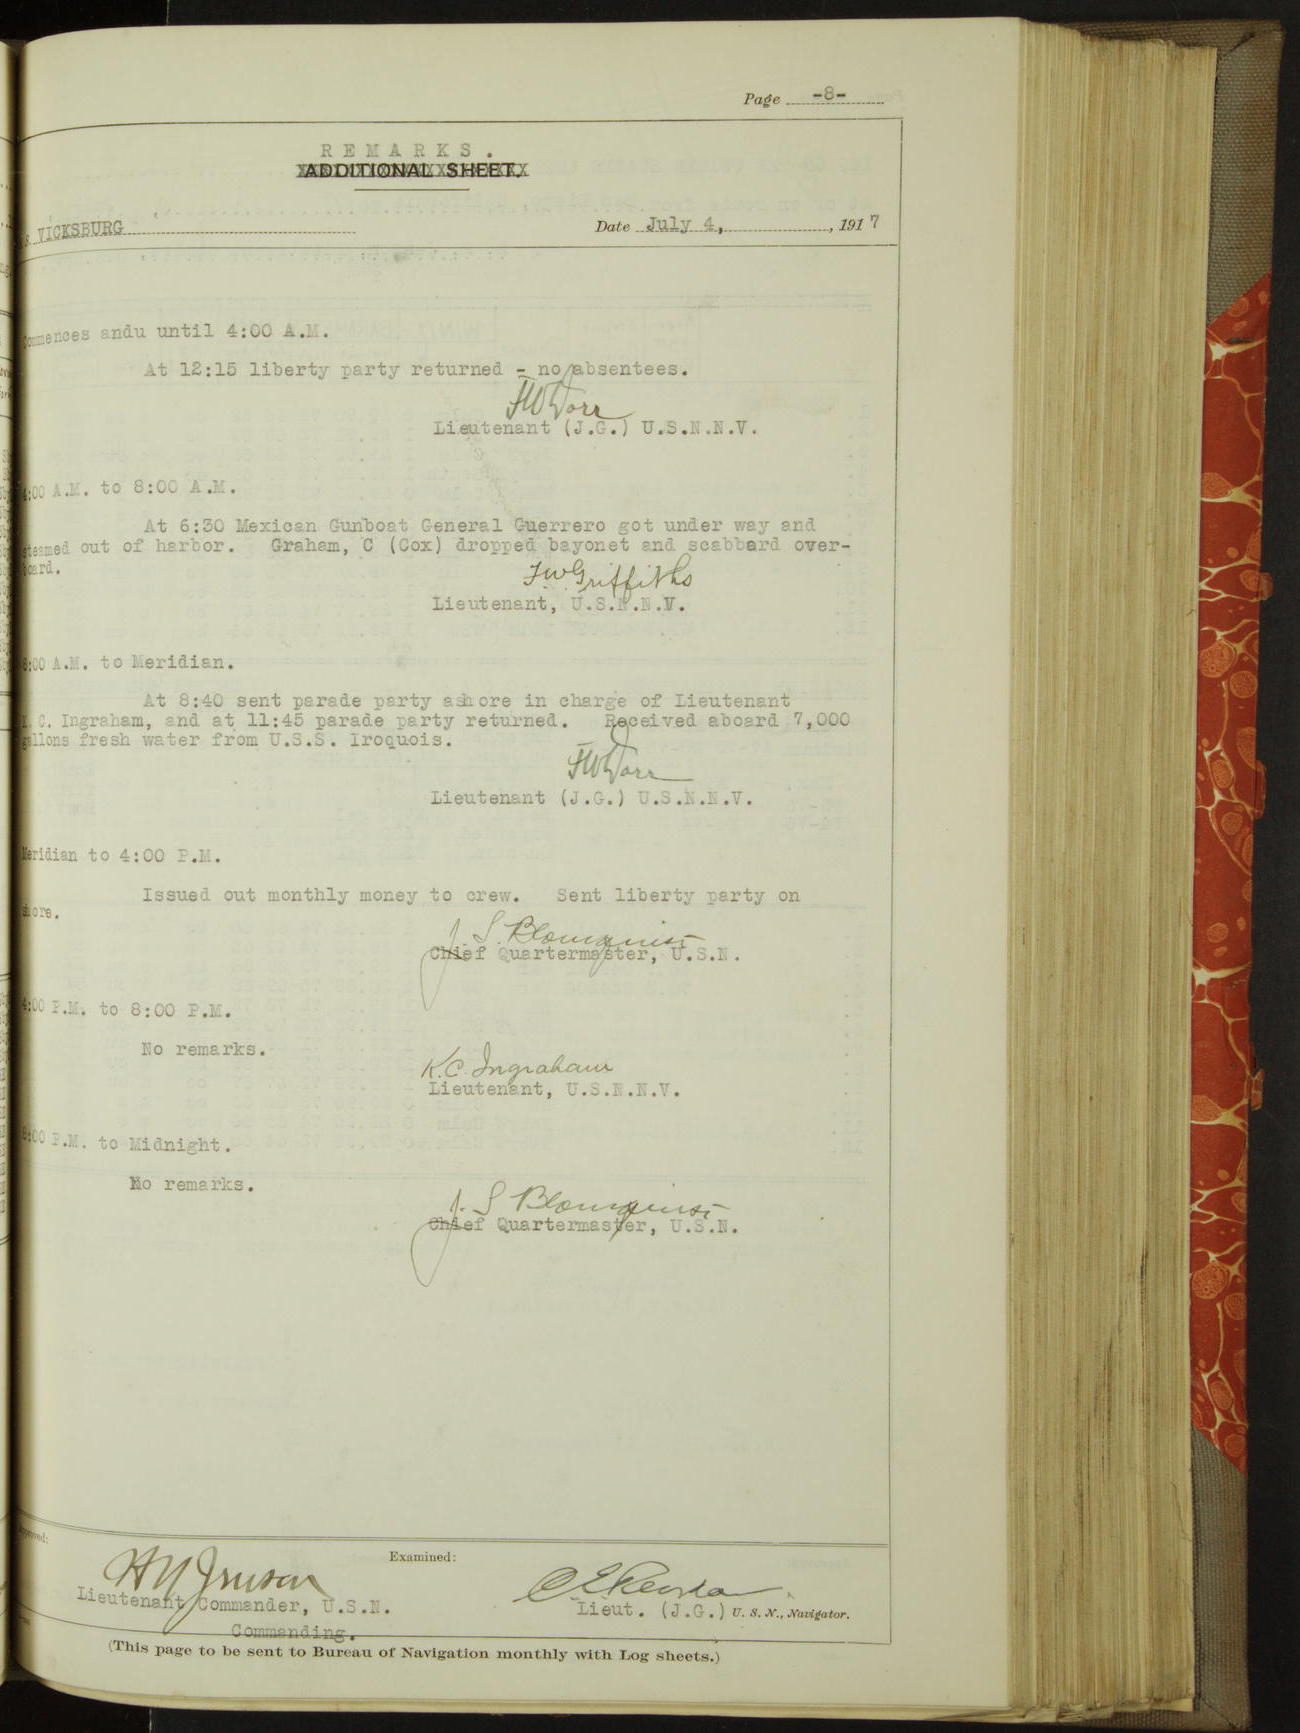 Page -8-
REMARKS.
ADDITIONAL SHEET.
S. VICKSBURG Date July 4, , 1917
Commences andu until 4:00 A.M.
At 12:15 liberty party returned - no absentees.
F W Dorr
Lieutenant (J.G.) U.S.N.N.V.
4:00 A.M. to 8:00 A.M.
At 6:30 Mexican Gunboat General Guerrero got under way and
steamed out of harbor. Graham, C (Cox) dropped bayonet and scabbard over-
board.
F.W. Griffiths
Lieutenant, U.S.N.N.V.
8:00 A.M. to Meridian.
At 8:40 sent parade party ashore in charge of Lieutenant
K. C. Ingraham, and at 11:45 parade party returned. Received aboard 7,000
gallons fresh water from U.S.S. Iroquois.
F W Dorr
Lieutenant (J.G.) U.S.N.N.V.
Meridian to 4:00 P.M.
Issued out monthly money to crew. Sent liberty party on
shore.
J. S. Blomquist
Chief Quartermaster, U.S.N.
4:00 P.M. to 8:00 P.M.
No remarks.
K.C. Ingraham
Lieutenant, U.S.N.N.V.
8:00 P.M. to Midnight.
No remarks.
J. S Blomquist
Chief Quartermaster, U.S.N.
Approved:
Examined:
Lieutenant Commander, U.S.N.
Lieut. (J.G.) U. S. N., Navigator.
Commanding.
(This page to be sent to Bureau of Navigation monthly with Log sheets.)